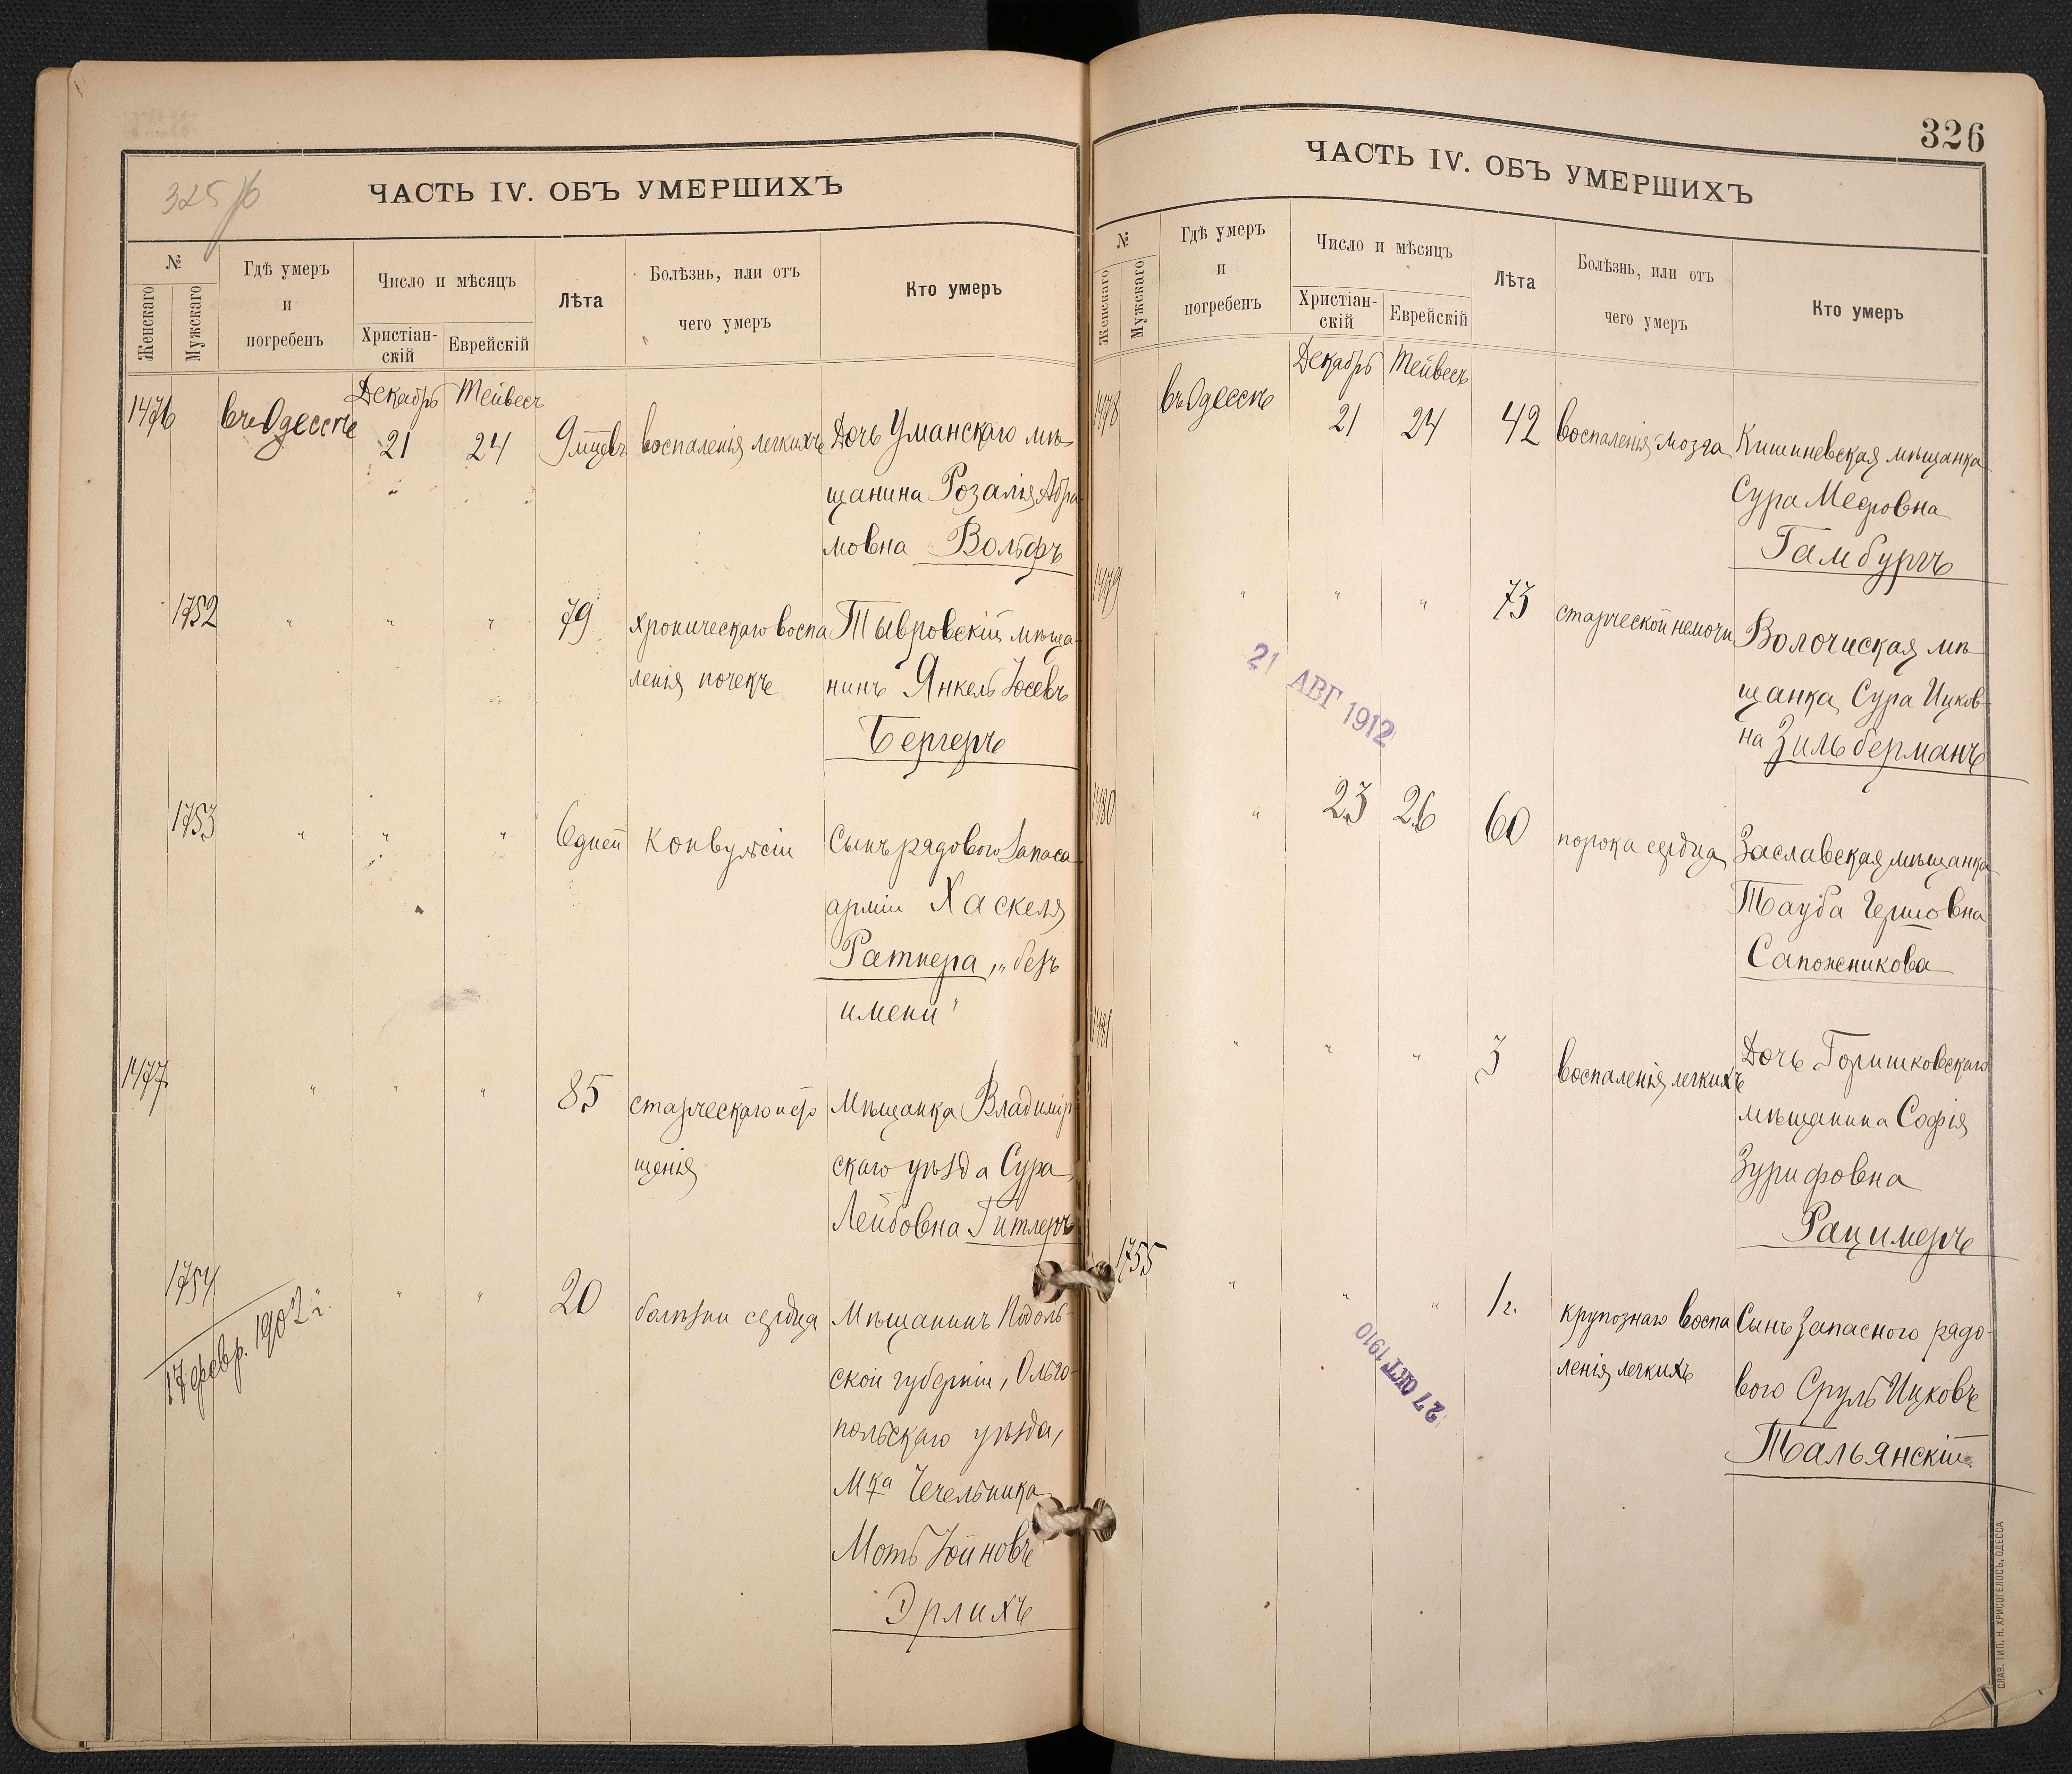 325 об
ЧАСТЬ IV. ОБЪ УМЕРШИХЪ
№
Женскаго
Мужскаго
Гдѣ умеръ
и
погребенъ
Число и мѣсяцъ
Христіан-
скій
Еврейскій
Лѣта
Болѣзнь, или отъ
чего умеръ
Кто умеръ
Декабрь Тейвесъ
1476 въ Одессѣ 21 24 9 мцевъ воспаленія легкихъ Дочь Уманскаго мѣ-
щанина Розалія Абра-
мовна Вольфъ
1752 " " " 79 хроническаго воспа Тывровскій мѣща-
ленія почекъ нинъ Янкель Іосевъ
Бергеръ
1753 " " " 6 дней Конвульсіи Сынъ рядового запаса
арміи Хаскеля
Ратнера, „безъ
имени"
1477 " " " 85 старческаго исто Мѣщанка Владимір-
щенія скаго уѣзда Сура
Лейбовна Гитлеръ
1754 " " 20 болѣзни сердца Мѣщанинъ Подоль-
17 февр. 1902 г.
ской губерніи, Ольго-
польскаго уѣзда,
М-ка Чечельника
Моть Іойновъ
Эрлихъ
326
ЧАСТЬ IV. ОБЪ УМЕРШИХЪ
№
Женскаго
Мужскаго
Гдѣ умеръ
и
погребенъ
Число и мѣсяцъ
Христіан-
скій
Еврейскій
Лѣта
Болѣзнь, или отъ
чего умеръ
Кто умеръ
Декабрь Тейвесъ
1478 въ Одессѣ 21 24 42 воспаленія мозга Кишиневская мѣщанка
Сура Мееровна
Гамбургъ
1479 " " " 73 старческой немочи Волочиская мѣ-
щанка Сура Ицков-
на Зильберманъ
21 АВГ 1912
1480 " 23 26 60 порока сердца Заславская мѣщанка
Тауба Гершовна
Сапожникова
1481 " " " 3 воспаленія легкихъ Дочь Горишковскаго
мѣщанина Софія
Зурифовна
Рацимеръ
1755 " " " 1 г. крупознаго воспа Сынъ запасного рядо-
ленія легкихъ вого Сруль Ицковъ
Тальянскій
27 ОКТ 1910
СЛАВ. ТИП. Н. ХРИСОГЕЛОСЪ, ОДЕССА